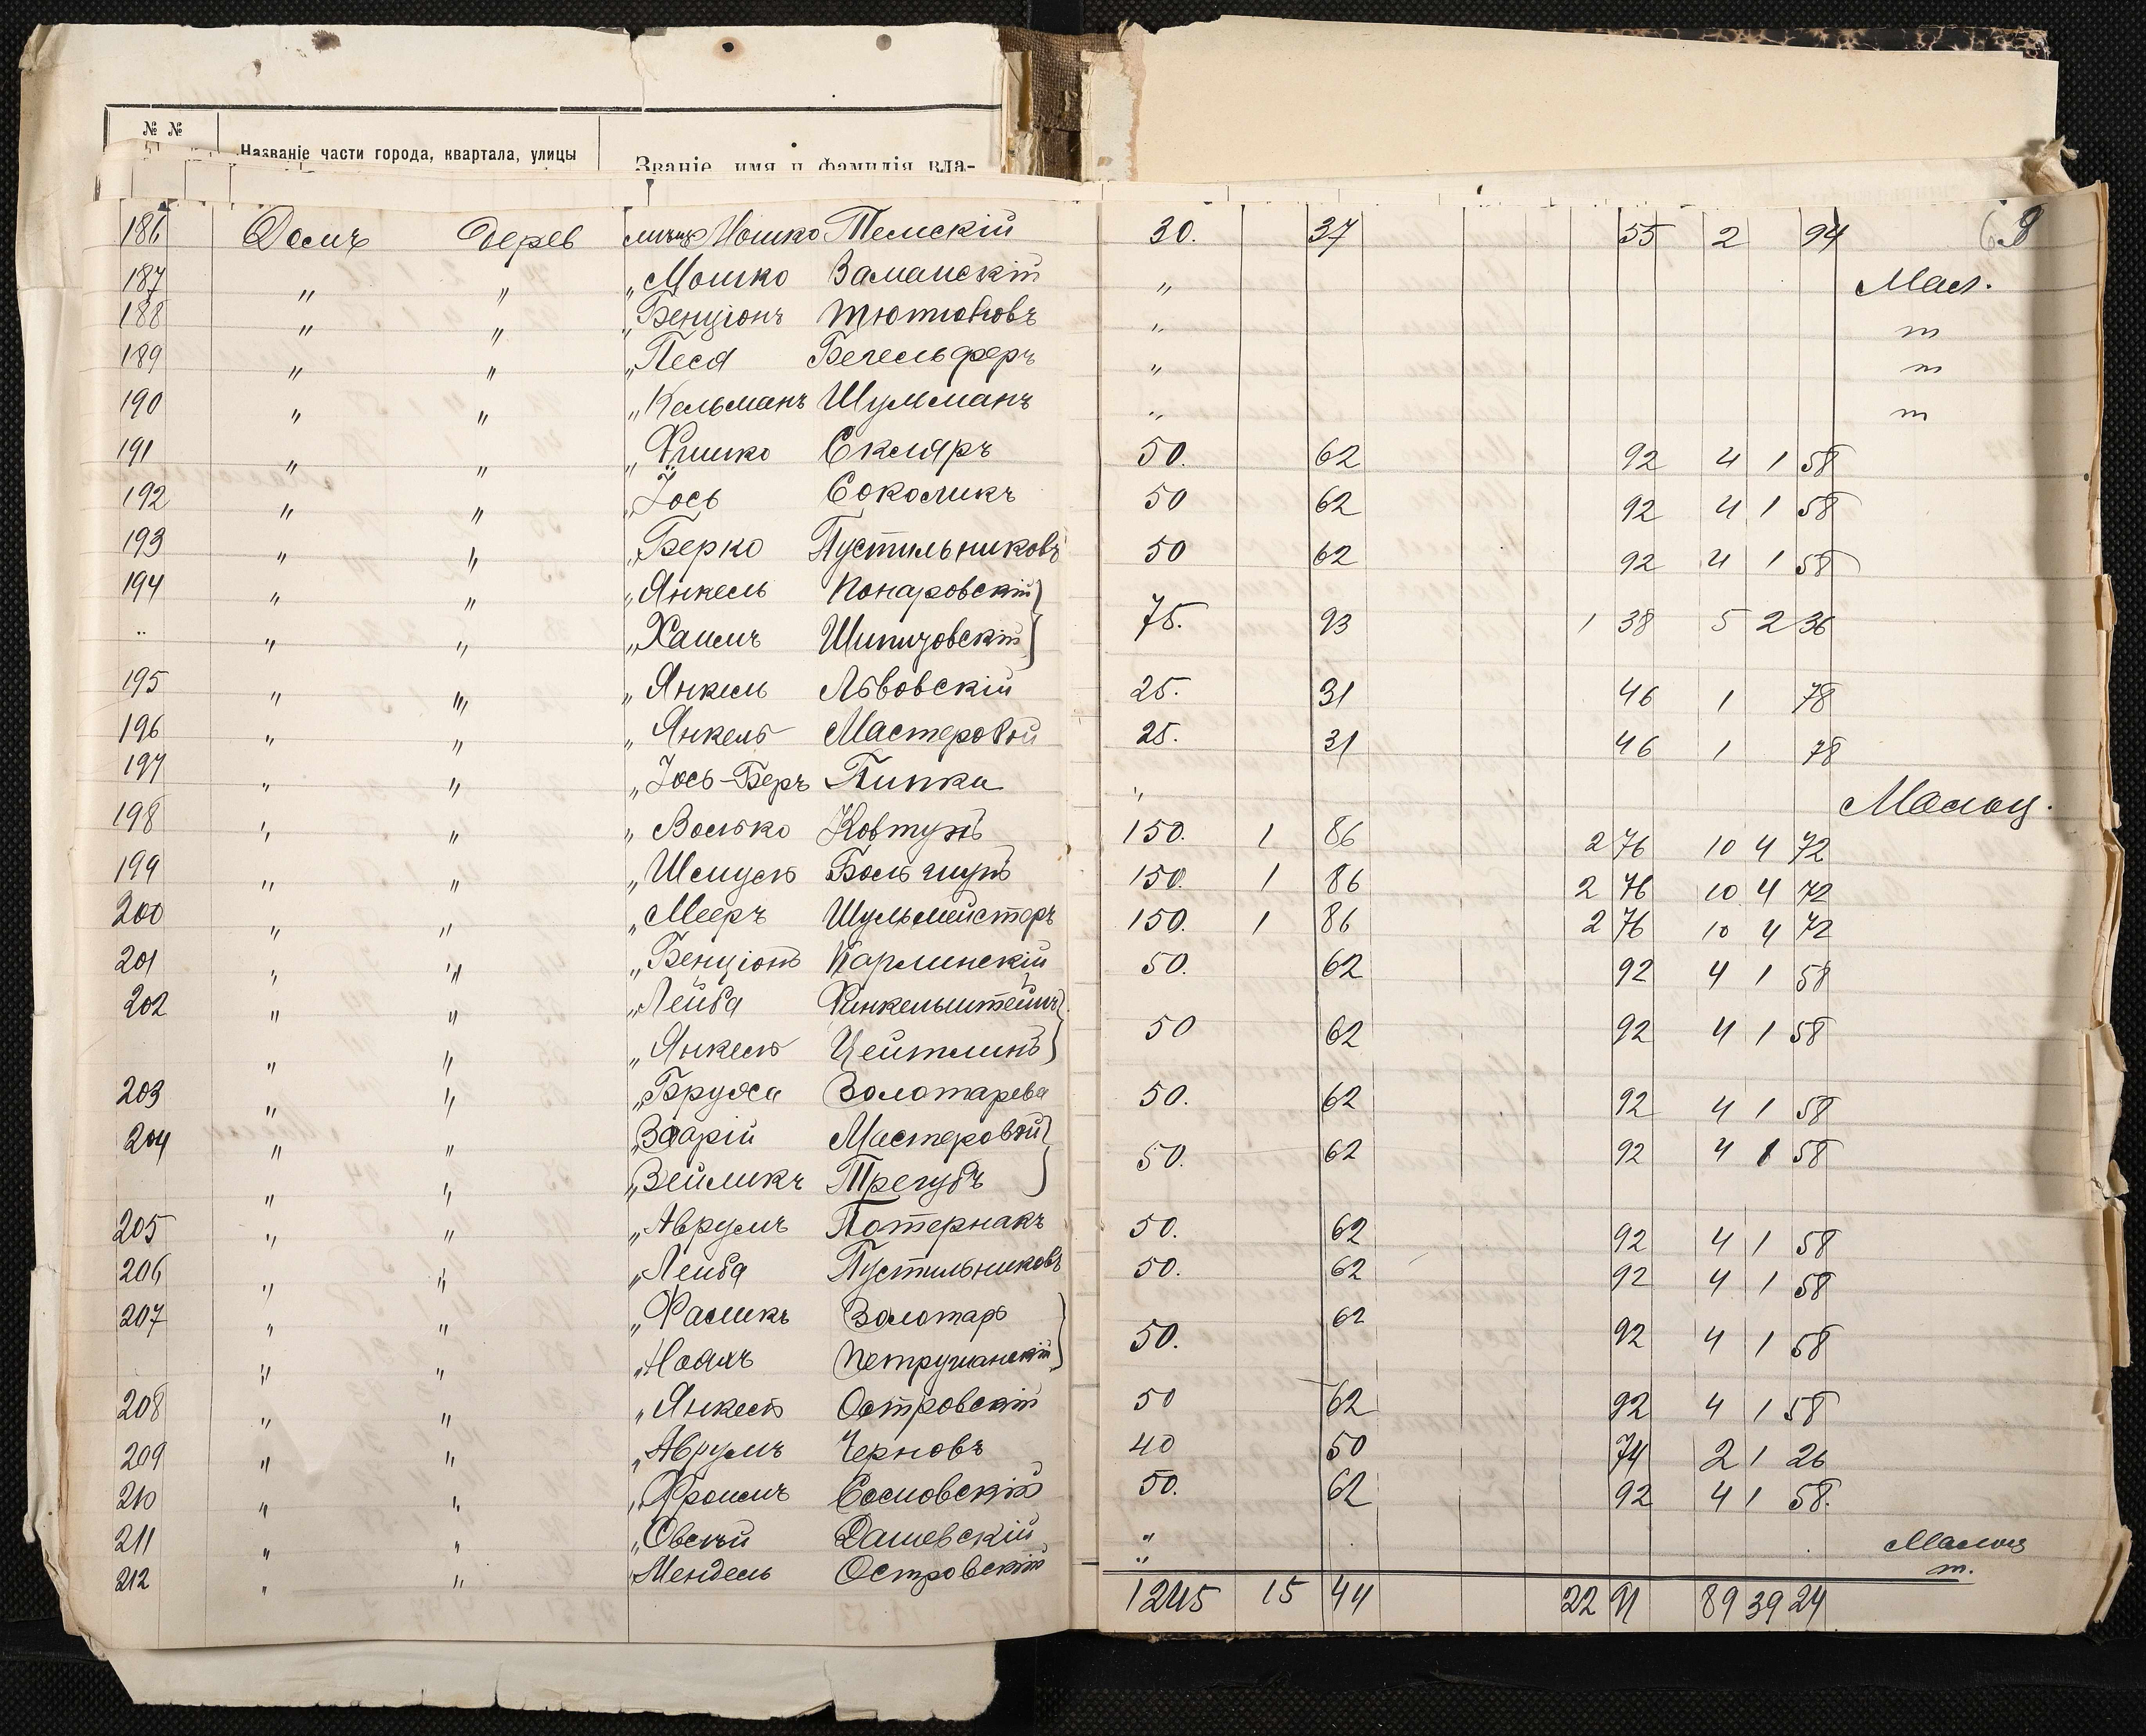 № №
Названіе части города, квартала, улицы
Званіе, имя и фамилія вла-
186 Домъ дерев мѣщ Ношко Темскій 30. 37 55 2 94
187 " " " Мошко Заманскій " Мал.
188 " " " Бенціонъ Тютюновъ " т
189 " " " Песя Бегельферъ " т
190 " " " Кельманъ Шульманъ " т
191 " " " Фишко Скляръ 50. 62 92 4 1 58
192 " " " Іось Соколикъ 50 62 92 4 1 58
193 " " " Берко Пустильниковъ 50 62 92 4 1 58
194 " " " Янкель Понаровскій
" " " " Хаимъ 75. 93 1 38 5 2 36
195 " " " Янкель Львовскій 25. 31 46 1 78
196 " " " Янкель Мастеровой 25. 31 46 1 78
197 " " " Іось-Беръ Пипки " Малоц.
198 " " " Волько Ковтунъ 150. 1 86 2 76 10 4 72
199 " " " Шмуль 150. 1 86 2 76 10 4 72
200 " " " Мееръ Шульмейстеръ 150. 1 86 2 76 10 4 72
201 " " " Бенціонъ Карлинскій 50. 62 92 4 1 58
202 " " " Лейба Финкельштейнъ
" " " Янкель Цейтлинъ 50 62 92 4 1 58
203 " " " Бруха Золотарева 50. 62 92 4 1 58
204 " " " Мастеровой
" " " Зейликъ Трегубъ 50. 62 92 4 1 58
205 " " " Аврумъ Потернакъ 50. 62 92 4 1 58
206 " " " Лейба Пустильниковъ 50. 62 92 4 1 58
207 " " " Фаликъ Золотарь 62
" " " Ноахъ Петрушанскій 50. 92 4 1 58
208 " " " Янкель Островскій 50 62 92 4 1 58
209 " " " Аврумъ Черновъ 40 50 74 2 1 26
210 " " " Фроимъ Сосновскій 50. 62 92 4 1 58.
211 " " " Овсѣй Дашевскій " Малоц
212 " " " Мендель Островскій " т.
1245 15 44 22 91 89 39 24